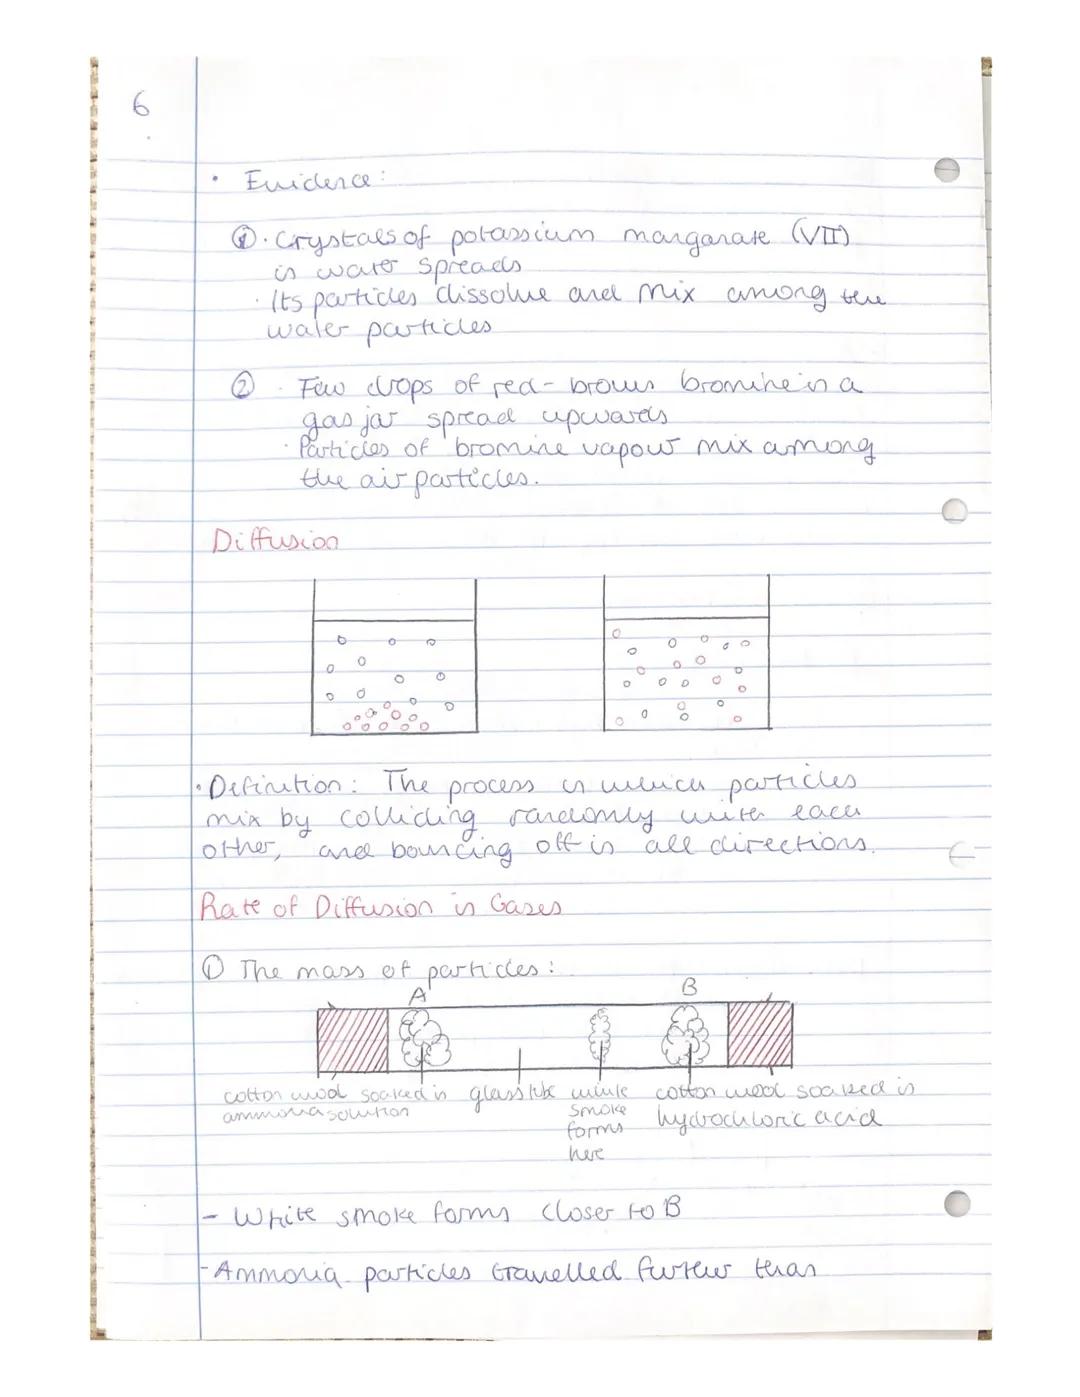 6
• Evidence:
① • Crystals of potassium manganate (VII)
in water spreads
• Its particles dissolve and mix among the
water particles
② • Few drops of red-brown bromine in a
gas jar spread upwards
• Particles of bromine vapour mix among
the air particles.
Diffusion
• Definition: The process in which particles
mix by colliding randomly with each
other, and bouncing off in all directions.
Rate of Diffusion in Gases
① The mass of particles:
A B
cotton wool soaked in glass tube white cotton wool soaked in
ammonia solution smoke hydrochloric acid
forms
here
- White smoke forms closer to B
- Ammonia particles travelled further than